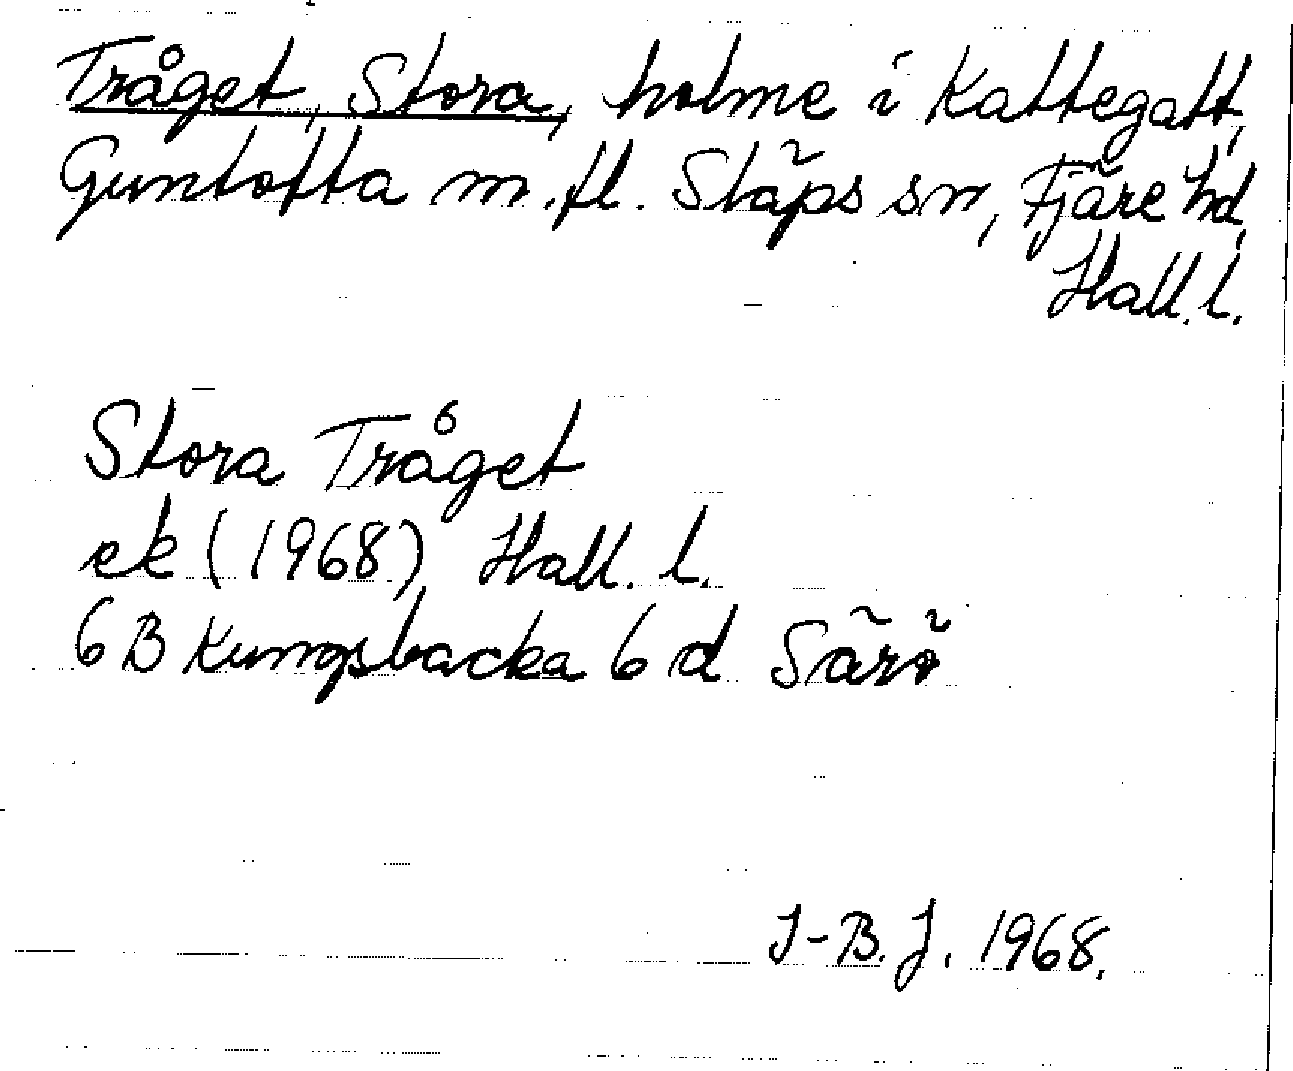 Tråget, Stora, holme i Kattegatt,
Guntofta m.fl. Släps sn, Fjäre hd,
Hall. l.
Stora Tråget
ek (1968) Hall. l.
6 B Kungsbacka 6 d Särö
I-B. J. 1968.